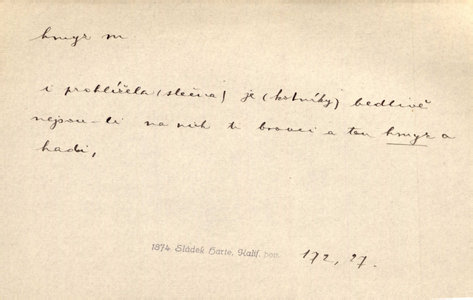 hmyz m
i prohlížela (slečna) je (kotníky) bedlivě
nejsou-li na nich ti brouci a ten hmyz a
hadi,
1874 Sládek Harte, Kalif. pov. 172, 27.